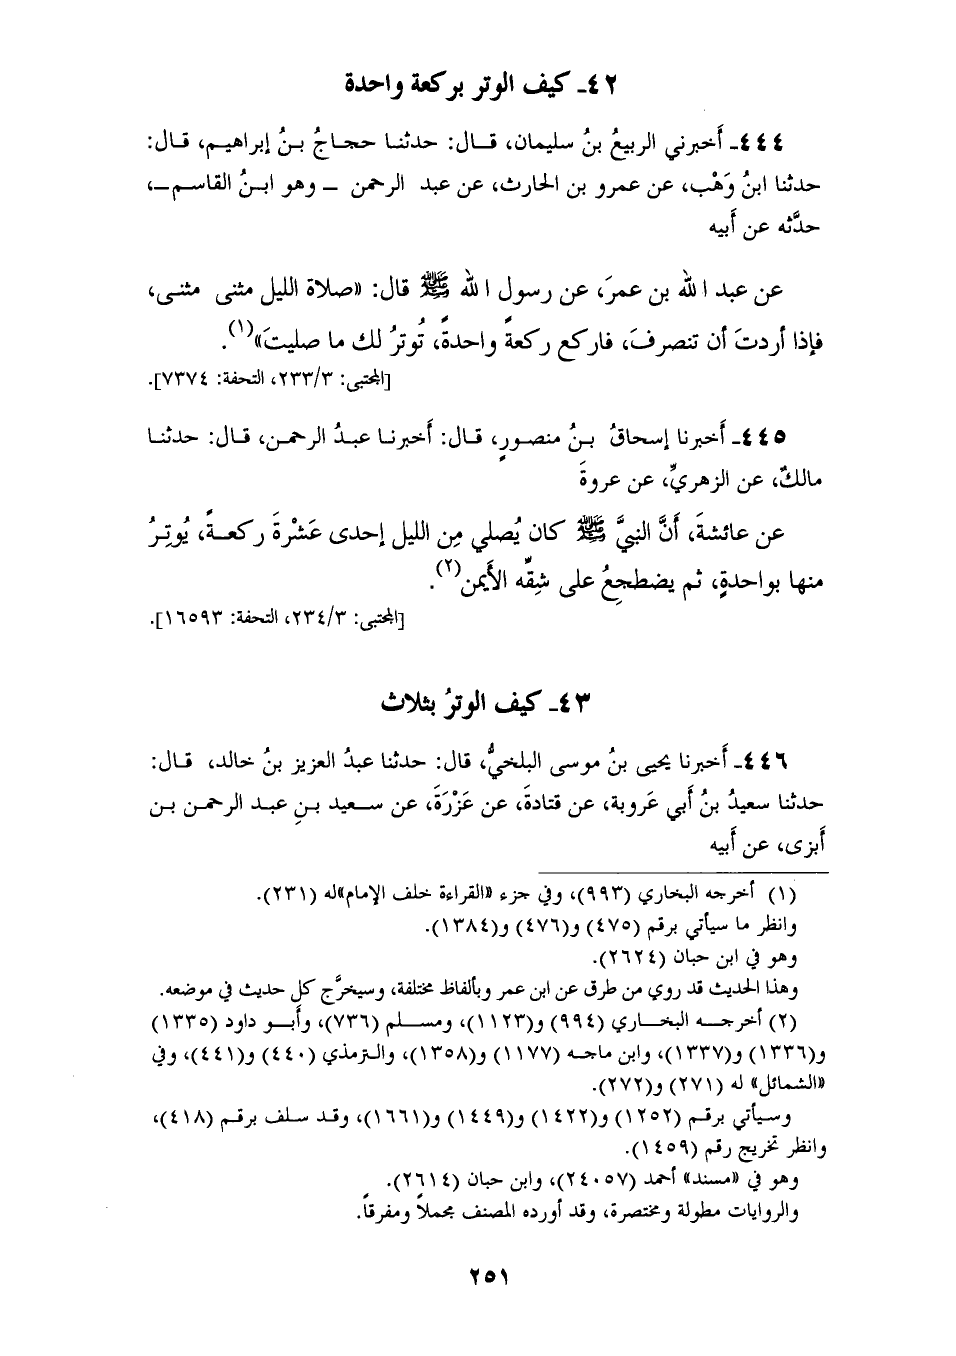 ٤٢ـ كيف الوتر بركعة واحدة
٤٤٤ـ أَخبرني الربيعُ بنُ سليمان، قال: حدثنا حجاجُ بنُ إبراهيم، قال:
حدثنا ابنُ وَهْب، عن عمرو بن الحارث، عن عبد الرحمن ـ وهو ابنُ القاسم ـ،
حدَّثه عن أَبيه
عن عبد الله بن عمرَ، عن رسول الله ﷺ قال: «صلاة الليل مثنى مثنى،
فإذا أردتَ أن تنصرفَ، فاركع ركعةً واحدةً، تُوتِرُ لك ما صليتَ»(١).
[المجتبى: ٢٣٣/٣، التحفة: ٧٣٧٤].
٤٤٥ـ أَخبرنا إسحاقُ بنُ منصورٍ، قال: أَخبرنا عبدُ الرحمن، قال: حدثنا
مالكٌ، عن الزهريِّ، عن عروةَ
عن عائشةَ، أَنَّ النبيَّ ﷺ كان يُصلي مِن الليل إحدى عَشْرةَ ركعةً، يُوتِرُ
منها بواحدةٍ، ثم يضطجعُ على شِقِّه الأَيمن(٢).
[المجتبى: ٢٣٤/٣، التحفة: ١٦٥٩٣].
٤٣ـ كيف الوترُ بثلاث
٤٤٦ـ أَخبرنا يحيى بنُ موسى البلخيُّ، قال: حدثنا عبدُ العزيز بنُ خالد، قال:
حدثنا سعيدُ بنُ أَبي عَروبة، عن قتادةَ، عن عَزْرَةَ، عن سعيد بنِ عبد الرحمن بن
أَبزى، عن أَبيه
(١) أخرجه البخاري (٩٩٣)، وفي جزء «القراءة خلف الإمام»له (٢٣١).
وانظر ما سيأتي برقم (٤٧٥) و(٤٧٦) و(١٣٨٤).
وهو في ابن حبان (٢٦٢٤).
وهذا الحديث قد روي من طرق عن ابن عمر وبألفاظ مختلفة، وسيخرَّج كل حديث في موضعه.
(٢) أخرجه البخاري (٩٩٤) و(١١٢٣)، ومسلم (٧٣٦)، وأبو داود (١٣٣٥)
و(١٣٣٦) و(١٣٣٧)، وابن ماجه (١١٧٧) و(١٣٥٨)، والترمذي (٤٤٠) و(٤٤١)، وفي
«الشمائل» له (٢٧١) و(٢٧٢).
وسيأتي برقم (١٢٥٢) و(١٤٢٢) و(١٤٤٩) و(١٦٦١)، وقد سلف برقم (٤١٨)،
وانظر تخريج رقم (١٤٥٩).
وهو في «مسند» أحمد (٢٤٠٥٧)، وابن حبان (٢٦١٤).
والروايات مطولة ومختصرة، وقد أورده المصنف مجملاً ومفرقاً.
٢٥١